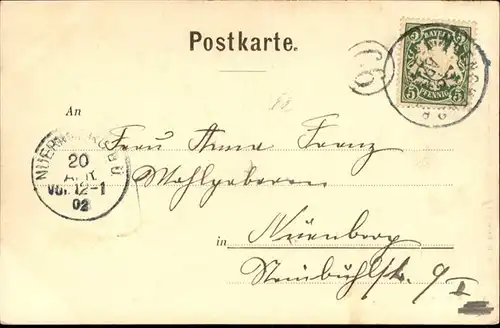 Postkarte.
BAYERN
5 PFENNIG 5
An
NUERNBERG
20
APR.
Vor. 12-1
02
Frau Anna Franz
Wohlgeboren
in Nürnberg
Steinbühlstr. 9 I